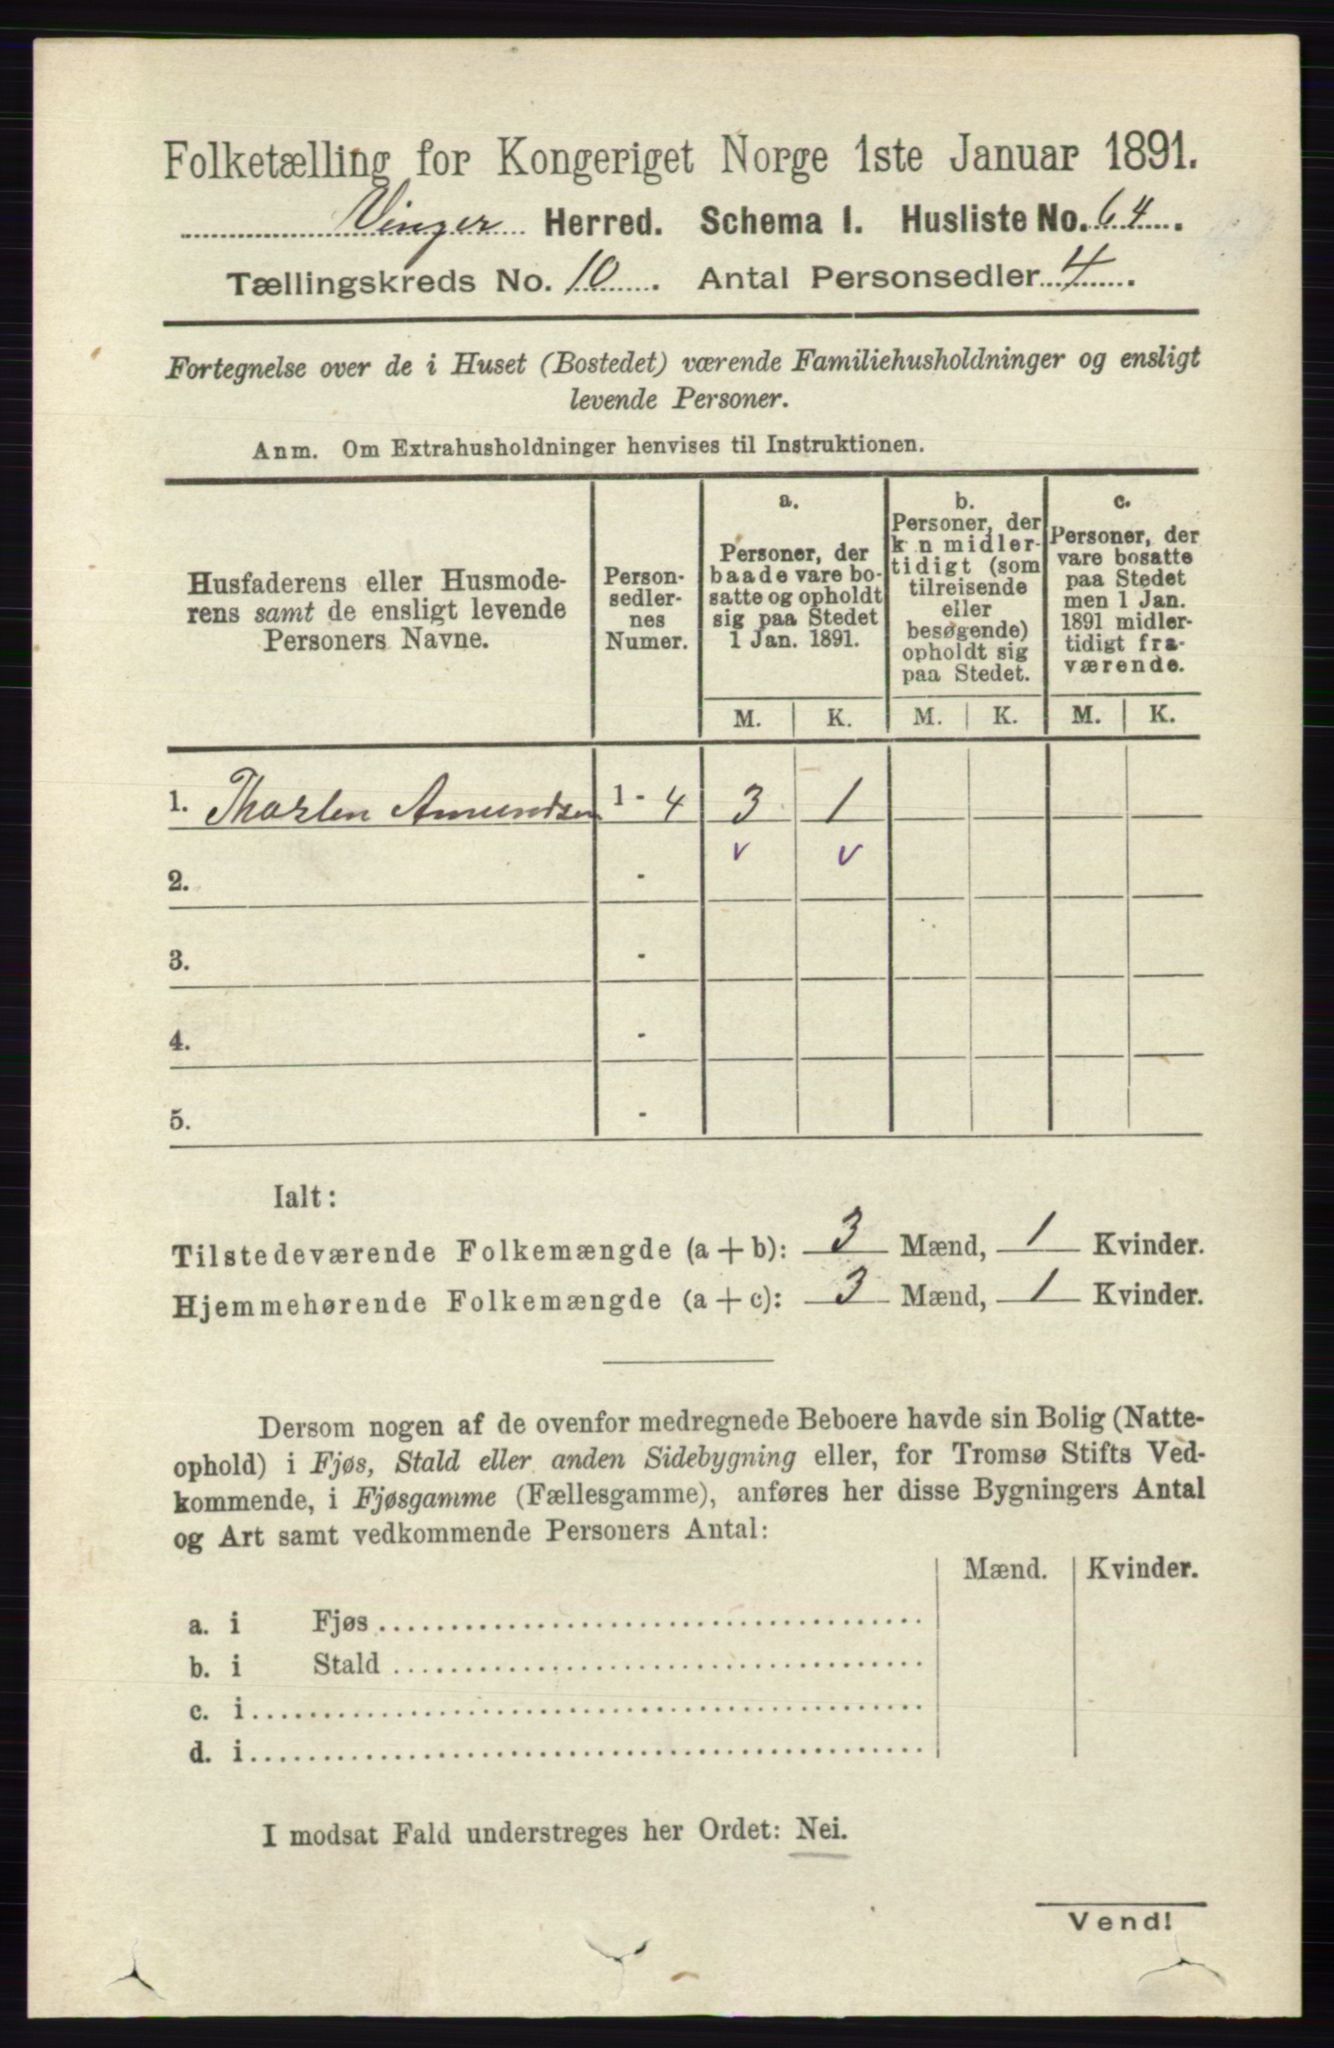 Folketælling for Kongeriget Norge 1ste Januar 1891.
Vinger Herred. Schema I. Husliste No. 64.
Tællingskreds No. 10. Antal Personsedler 4.
Fortegnelse over de i Huset (Bostedet) værende Familiehusholdninger og ensligt
levende Personer.
Anm. Om Extrahusholdninger henvises til Instruktionen.
Husfaderens eller Husmode-
rens samt de ensligt levende
Personers Navne.
Person-
sedler-
nes
Numer.
a.
Personer, der
baade vare bo-
satte og opholdt
sig paa Stedet
1 Jan. 1891.
b.
Personer, der
k n midler-
tidigt (som
tilreisende
eller
besøgende)
opholdt sig
paa Stedet.
c.
Personer, der
vare bosatte
paa Stedet
men 1 Jan.
1891 midler-
tidigt fra-
værende.
M. K. M. K. M. K.
1. Thorsten Amundsen 1 - 4 3 1
v v
2. -
3. -
4. -
5. -
Ialt:
Tilstedeværende Folkemængde (a + b): 3 Mænd, 1 Kvinder.
Hjemmehørende Folkemængde (a + c): 3 Mænd, 1 Kvinder.
Dersom nogen af de ovenfor medregnede Beboere havde sin Bolig (Natte-
ophold) i Fjøs, Stald eller anden Sidebygning eller, for Tromsø Stifts Ved-
kommende, i Fjøsgamme (Fællesgamme), anføres her disse Bygningers Antal
og Art samt vedkommende Personers Antal:
Mænd. Kvinder.
a. i Fjøs
b. i Stald
c. i
d. i
I modsat Fald understreges her Ordet: Nei.
Vend!